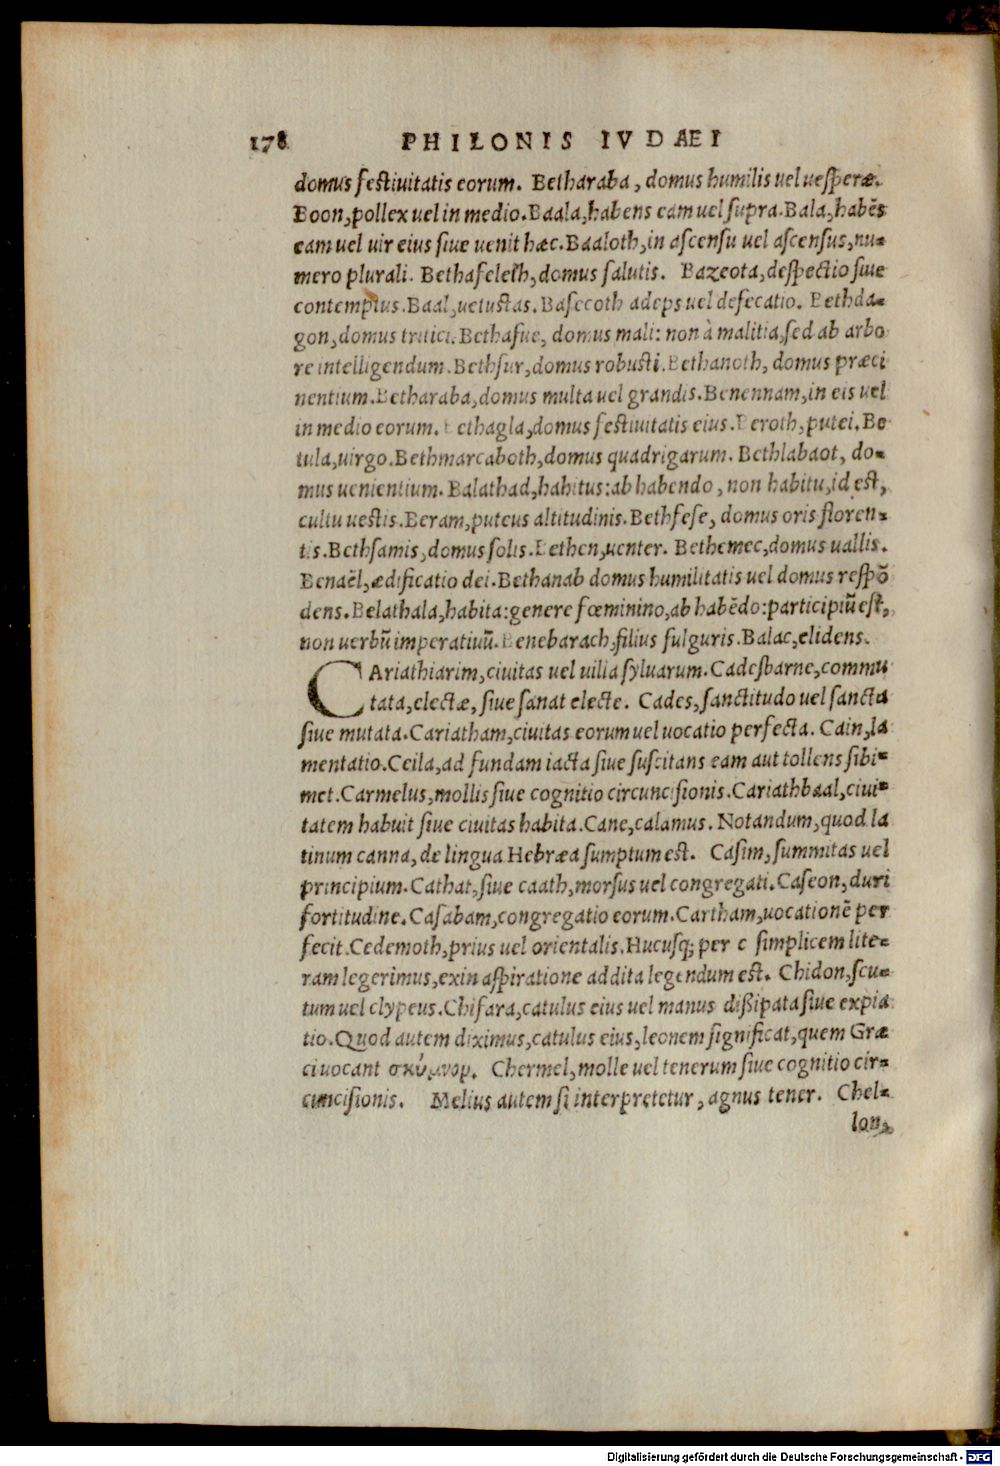 178 PHILONIS IVDAEI
domus festiuitatis eorum. Betharaba, domus humilis uel uesperæ.
Boon, pollex uel in medio. Baala, habens eam uel supra. Bala, habēs
eam uel uir eius siue uenit hæc. Baaloth, in ascensu uel ascensus, nu-
mero plurali. Bethafeleth, domus salutis. Bazeota, despectio siue
contemptus. Baal, uetustas. Basecoth adeps uel defecatio. Bethda-
gon, domus tritici. Bethasue, domus mali: non à malitia, sed ab arbo
re intelligendum. Bethsur, domus robusti. Bethanoth, domus præci
nentium. Betharaba, domus multa uel grandis. Benennam, in eis uel
in medio eorum. Bethagla, domus festiuitatis eius. Beroth, putei. Be
tula, uirgo. Bethmarcaboth, domus quadrigarum. Bethlabaot, do-
mus uenientium. Balathad, habitus: ab habendo, non habitu, id est,
cultu uestis. Beram, puteus altitudinis. Bethfese, domus oris floren-
tis. Bethsamis, domus solis. Bethen, uenter. Bethemec, domus uallis.
Benaēl, ædificatio dei. Bethanab domus humilitatis uel domus respō
dens. Belathala, habita: genere fœminino, ab habēdo: participiū est,
non uerbū imperatiuū. Benebarach, filius fulguris. Balac, elidens.
CAriathiarim, ciuitas uel uilla syluarum. Cadesbarne, commu
tata, electæ, siue sanat electe. Cades, sanctitudo uel sancta
siue mutata. Cariatham, ciuitas eorum uel uocatio perfecta. Cain, la
mentatio. Ceila, ad fundam iacta siue suscitans eam aut tollens sibi-
met. Carmelus, mollis siue cognitio circuncisionis. Cariathbaal, ciui-
tatem habuit siue ciuitas habita. Cane, calamus. Notandum, quod la
tinum canna, de lingua Hebræa sumptum est. Casim, summitas uel
principium. Cathat, siue caath, morsus uel congregati. Caseon, duri
fortitudine. Casabam, congregatio eorum. Cartham, uocationē per
fecit. Cedemoth, prius uel orientalis. Hucusq; per c simplicem lite-
ram legerimus, exin aspiratione addita legendum est. Chidon, scu-
tum uel clypeus. Chisara, catulus eius uel manus dißipata siue expia
tio. Quod autem diximus, catulus eius, leonem significat, quem Græ
ci uocant σκύμνορ. Chermel, molle uel tenerum siue cognitio cir-
cuncisionis. Melius autem si interpretetur, agnus tener. Chel-
lon,
Digitalisierung gefördert durch die Deutsche Forschungsgemeinschaft - DFG